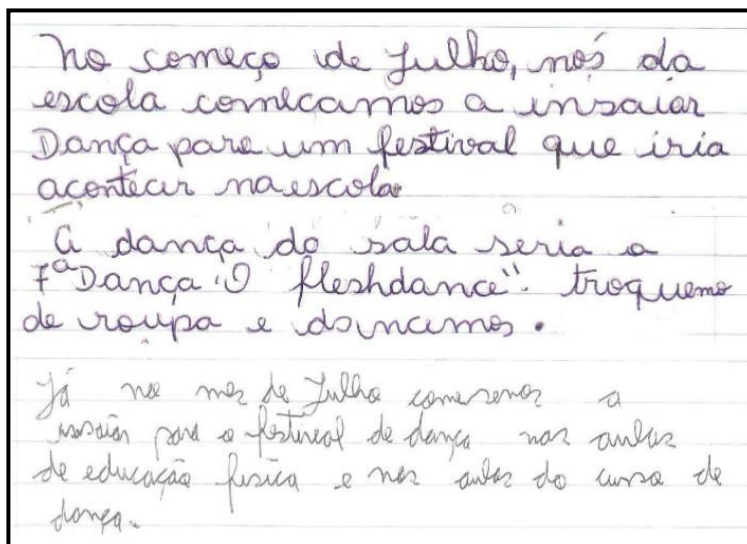 No começo de Julho, nós da
escola comecamos a insaiar
Dança para um festival que iria
acontecer na escola
A dança da sala seria a
7ª Dança "O fleshdance". troquemo
de roupa e dancemos.
Já no mes de Julho comesemos a
insaiar para o festival de dança nas aulas
de educação fisica e nas aulas do curso de
dança.